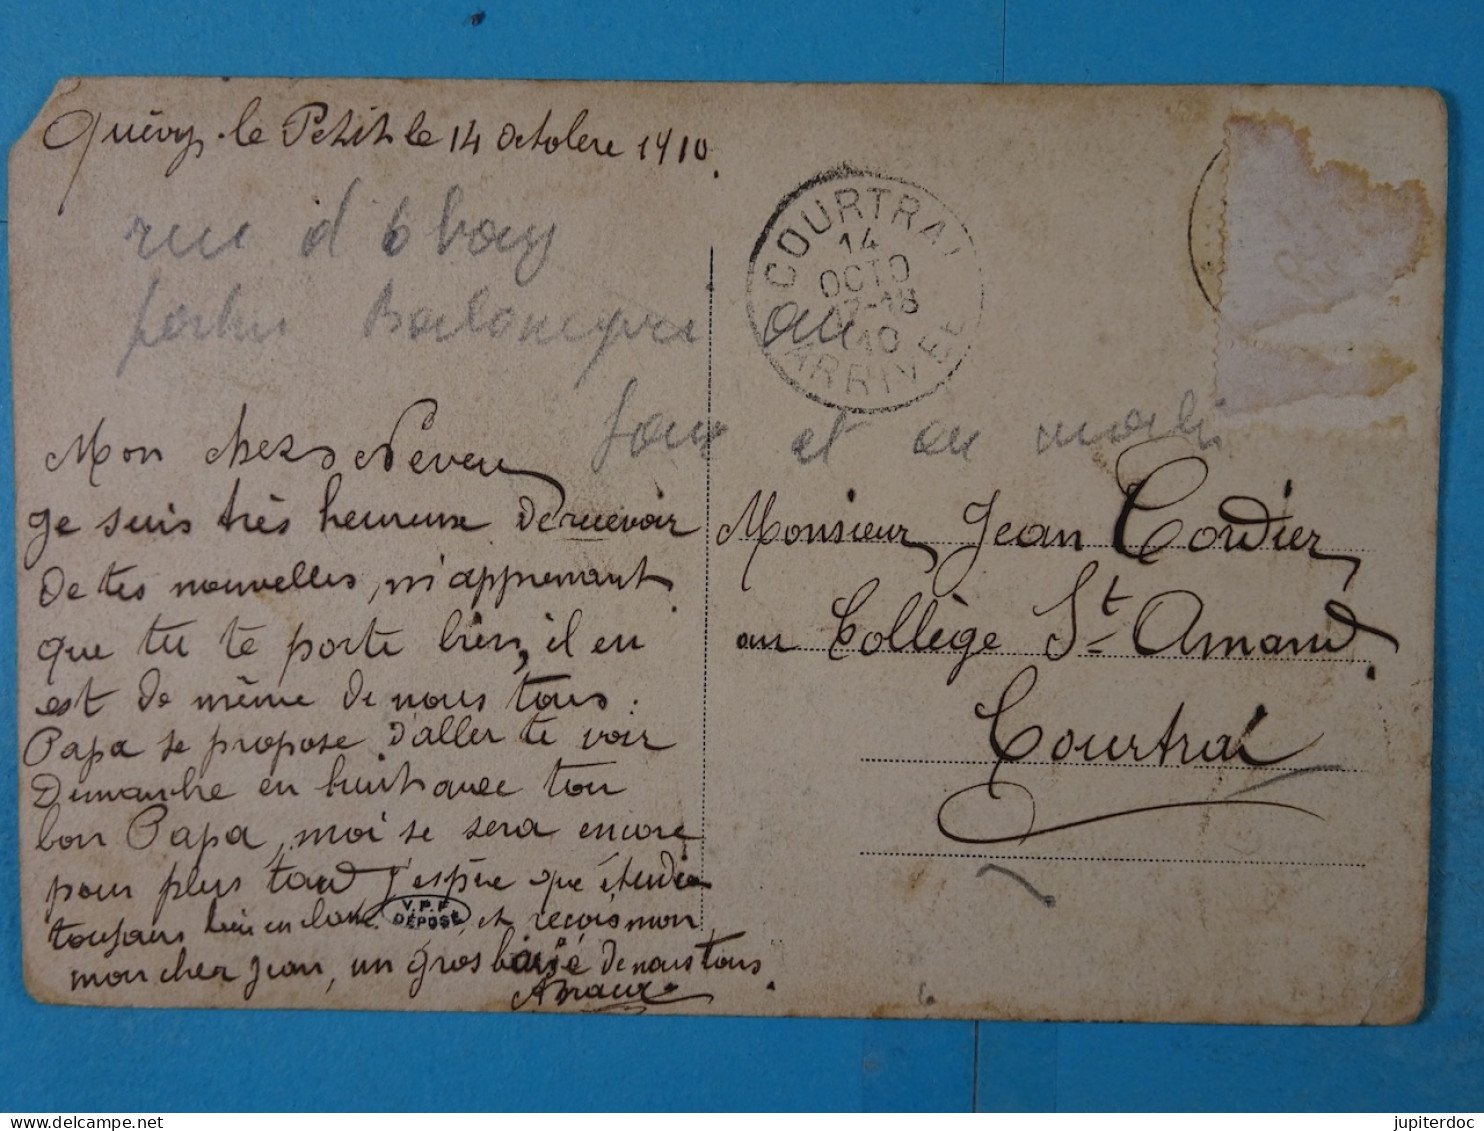 Quévy-le Petit le 14 octobre 1910.
rue d
au
et au
Mon cher Neveu
Je suis très heureux de recevoir
de tes nouvelles, m'apprenant
que tu te porte bien, il en
est de même de nous tous.
Papa se propose d'aller te voir
Dimanche en huit avec ton
bon Papa, moi se sera encore
pour plus tard J'espère que étudie
toujours bien en classe et reçois mon
mon cher Jean, un gros baisé de nous tous.
V.P.F
DÉPOSÉ
COURTRAI
14
OCTO
17-18
10
ARRIVEE
Monsieur Jean Cordier
au Collège St Amand.
Courtrai
jupiterdoc